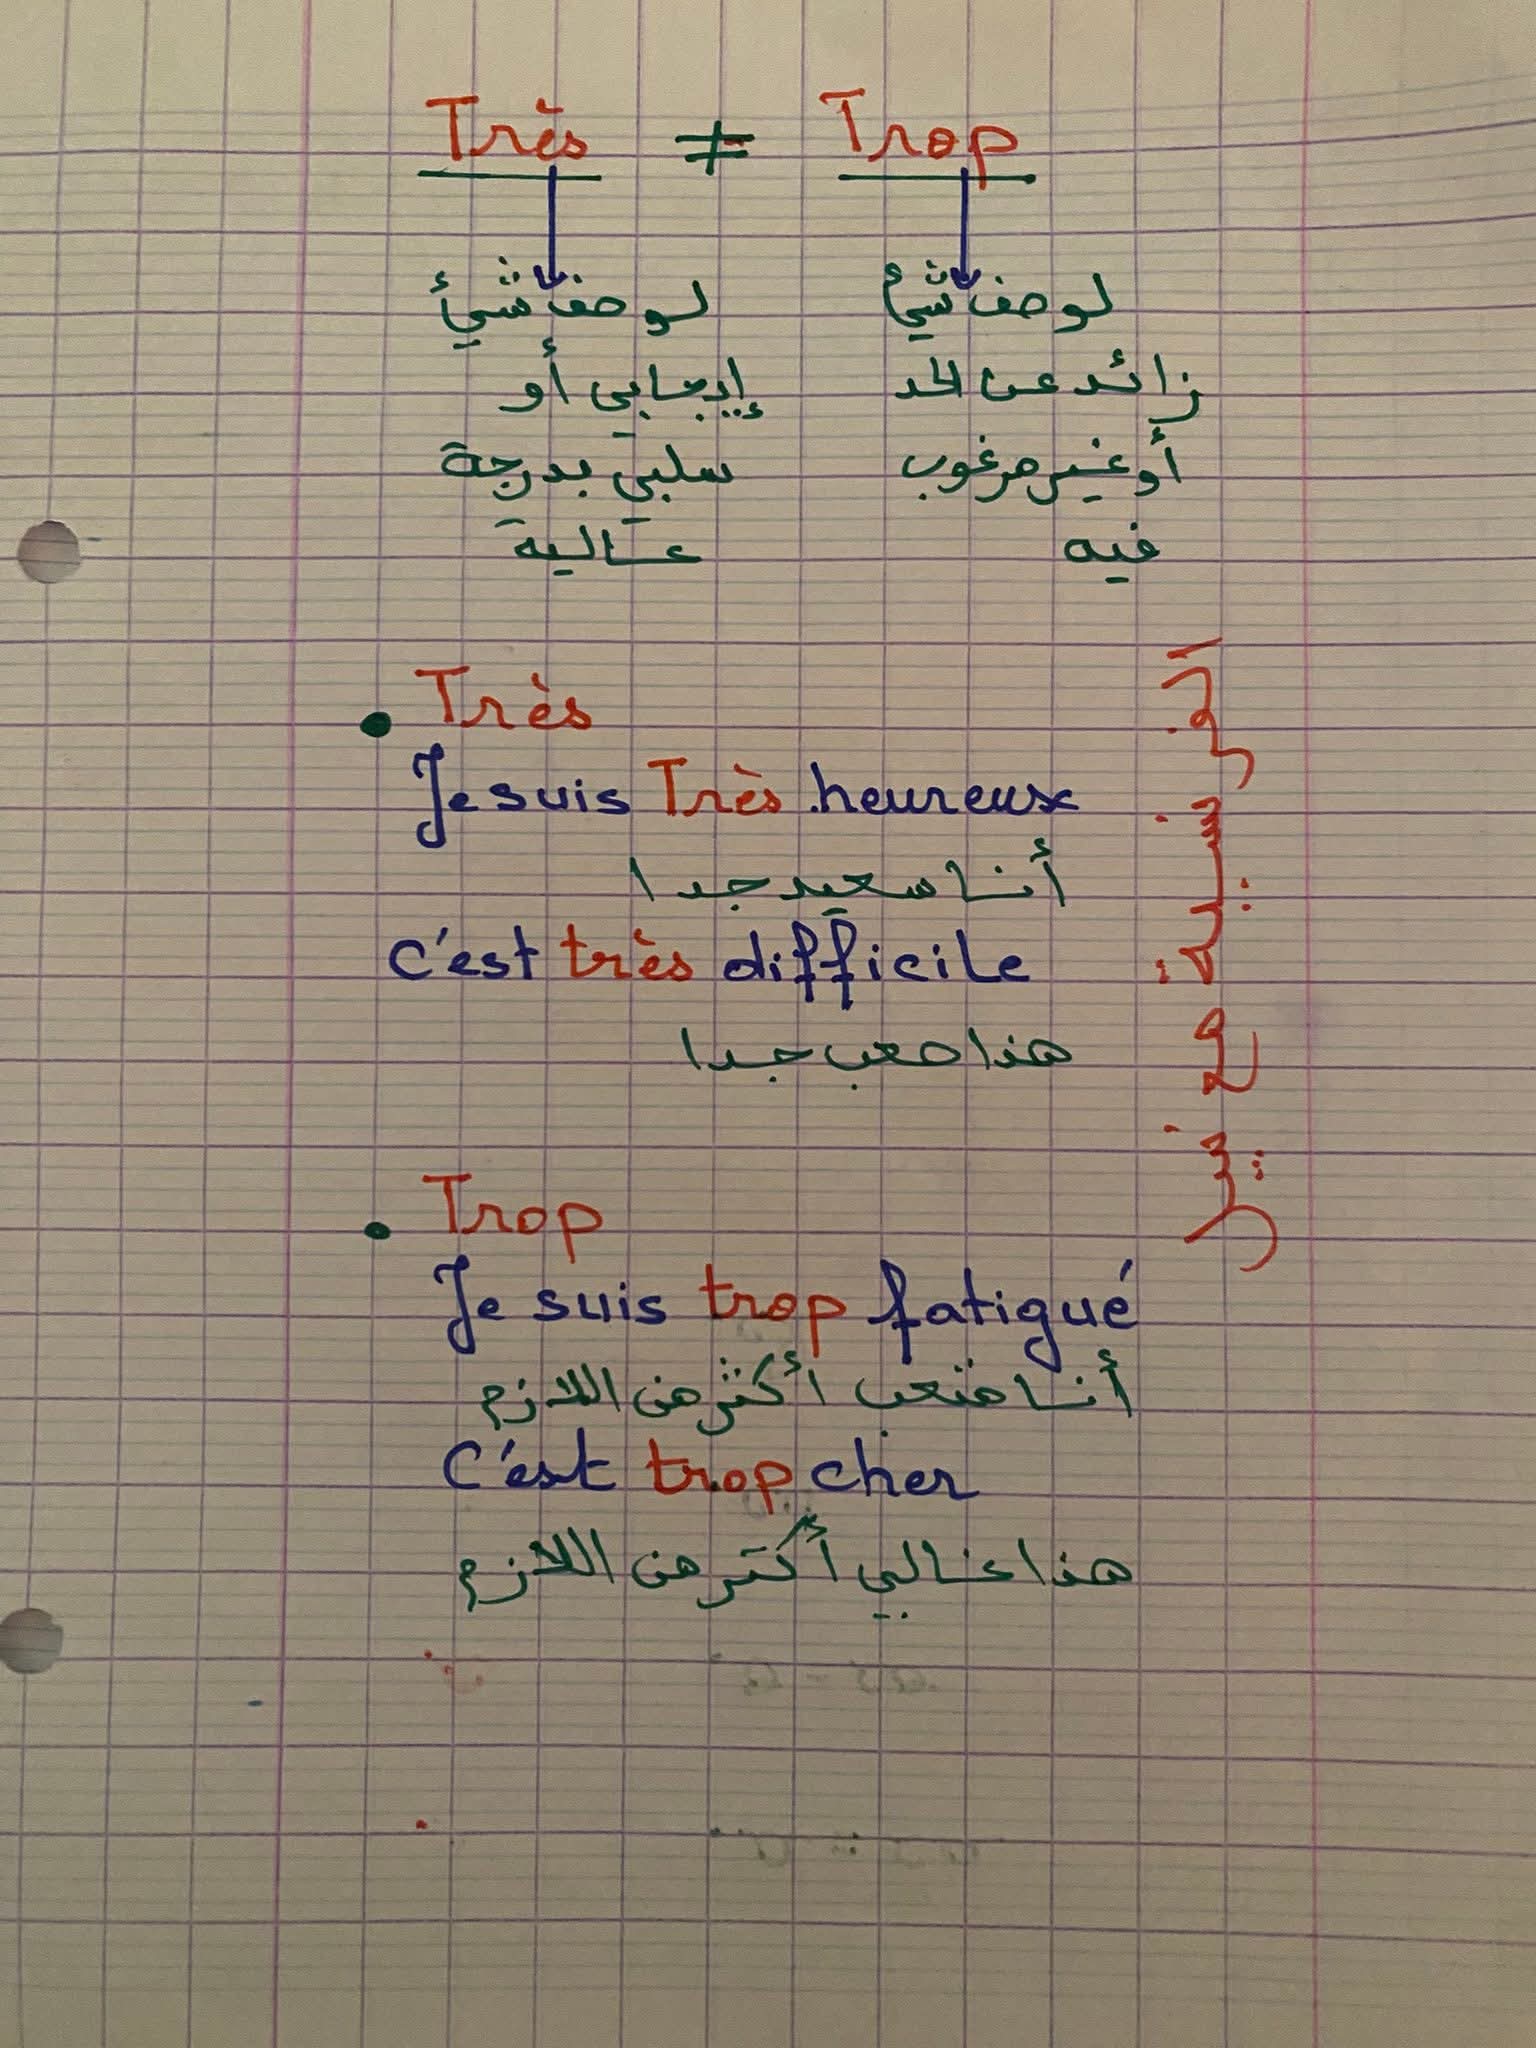 Très ≠ Trop
لوصف شيئ
إيجابي أو
سلبي بدرجة
عالية
لوصف شيء
زائد عن الحد
أو غير مرغوب
فيه
• Très
Je suis Très heureux
أنا سعيد جدا
c'est très difficile
هذا صعب جدا
• Trop
Je suis trop fatigué
أنا متعب أكثر من اللازم
C'est trop cher
هذا غالي أكتر من اللازم